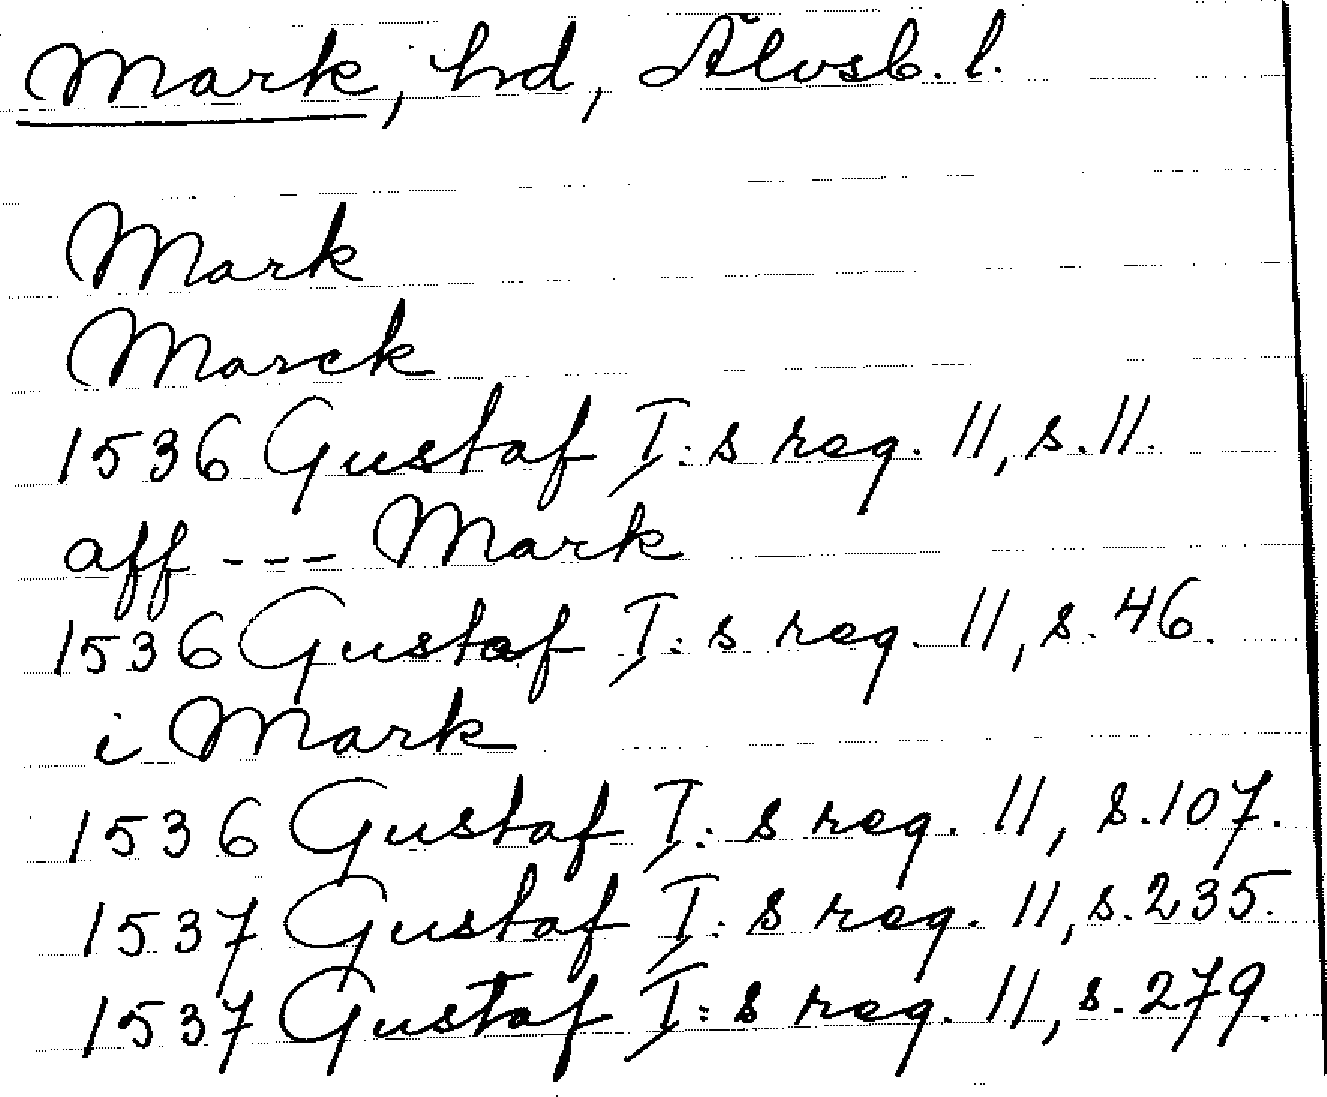 Mark, hd, Älvsb. l.
Mark
Marck
1536 Gustaf I:s reg. 11, s. 11.
aff --- Mark
1536 Gustaf I:s reg. 11, s. 46.
i Mark
1536 Gustaf I:s reg. 11, s. 107.
1537 Gustaf I:s reg. 11, s. 235.
1537 Gustaf I:s reg. 11, s. 279.